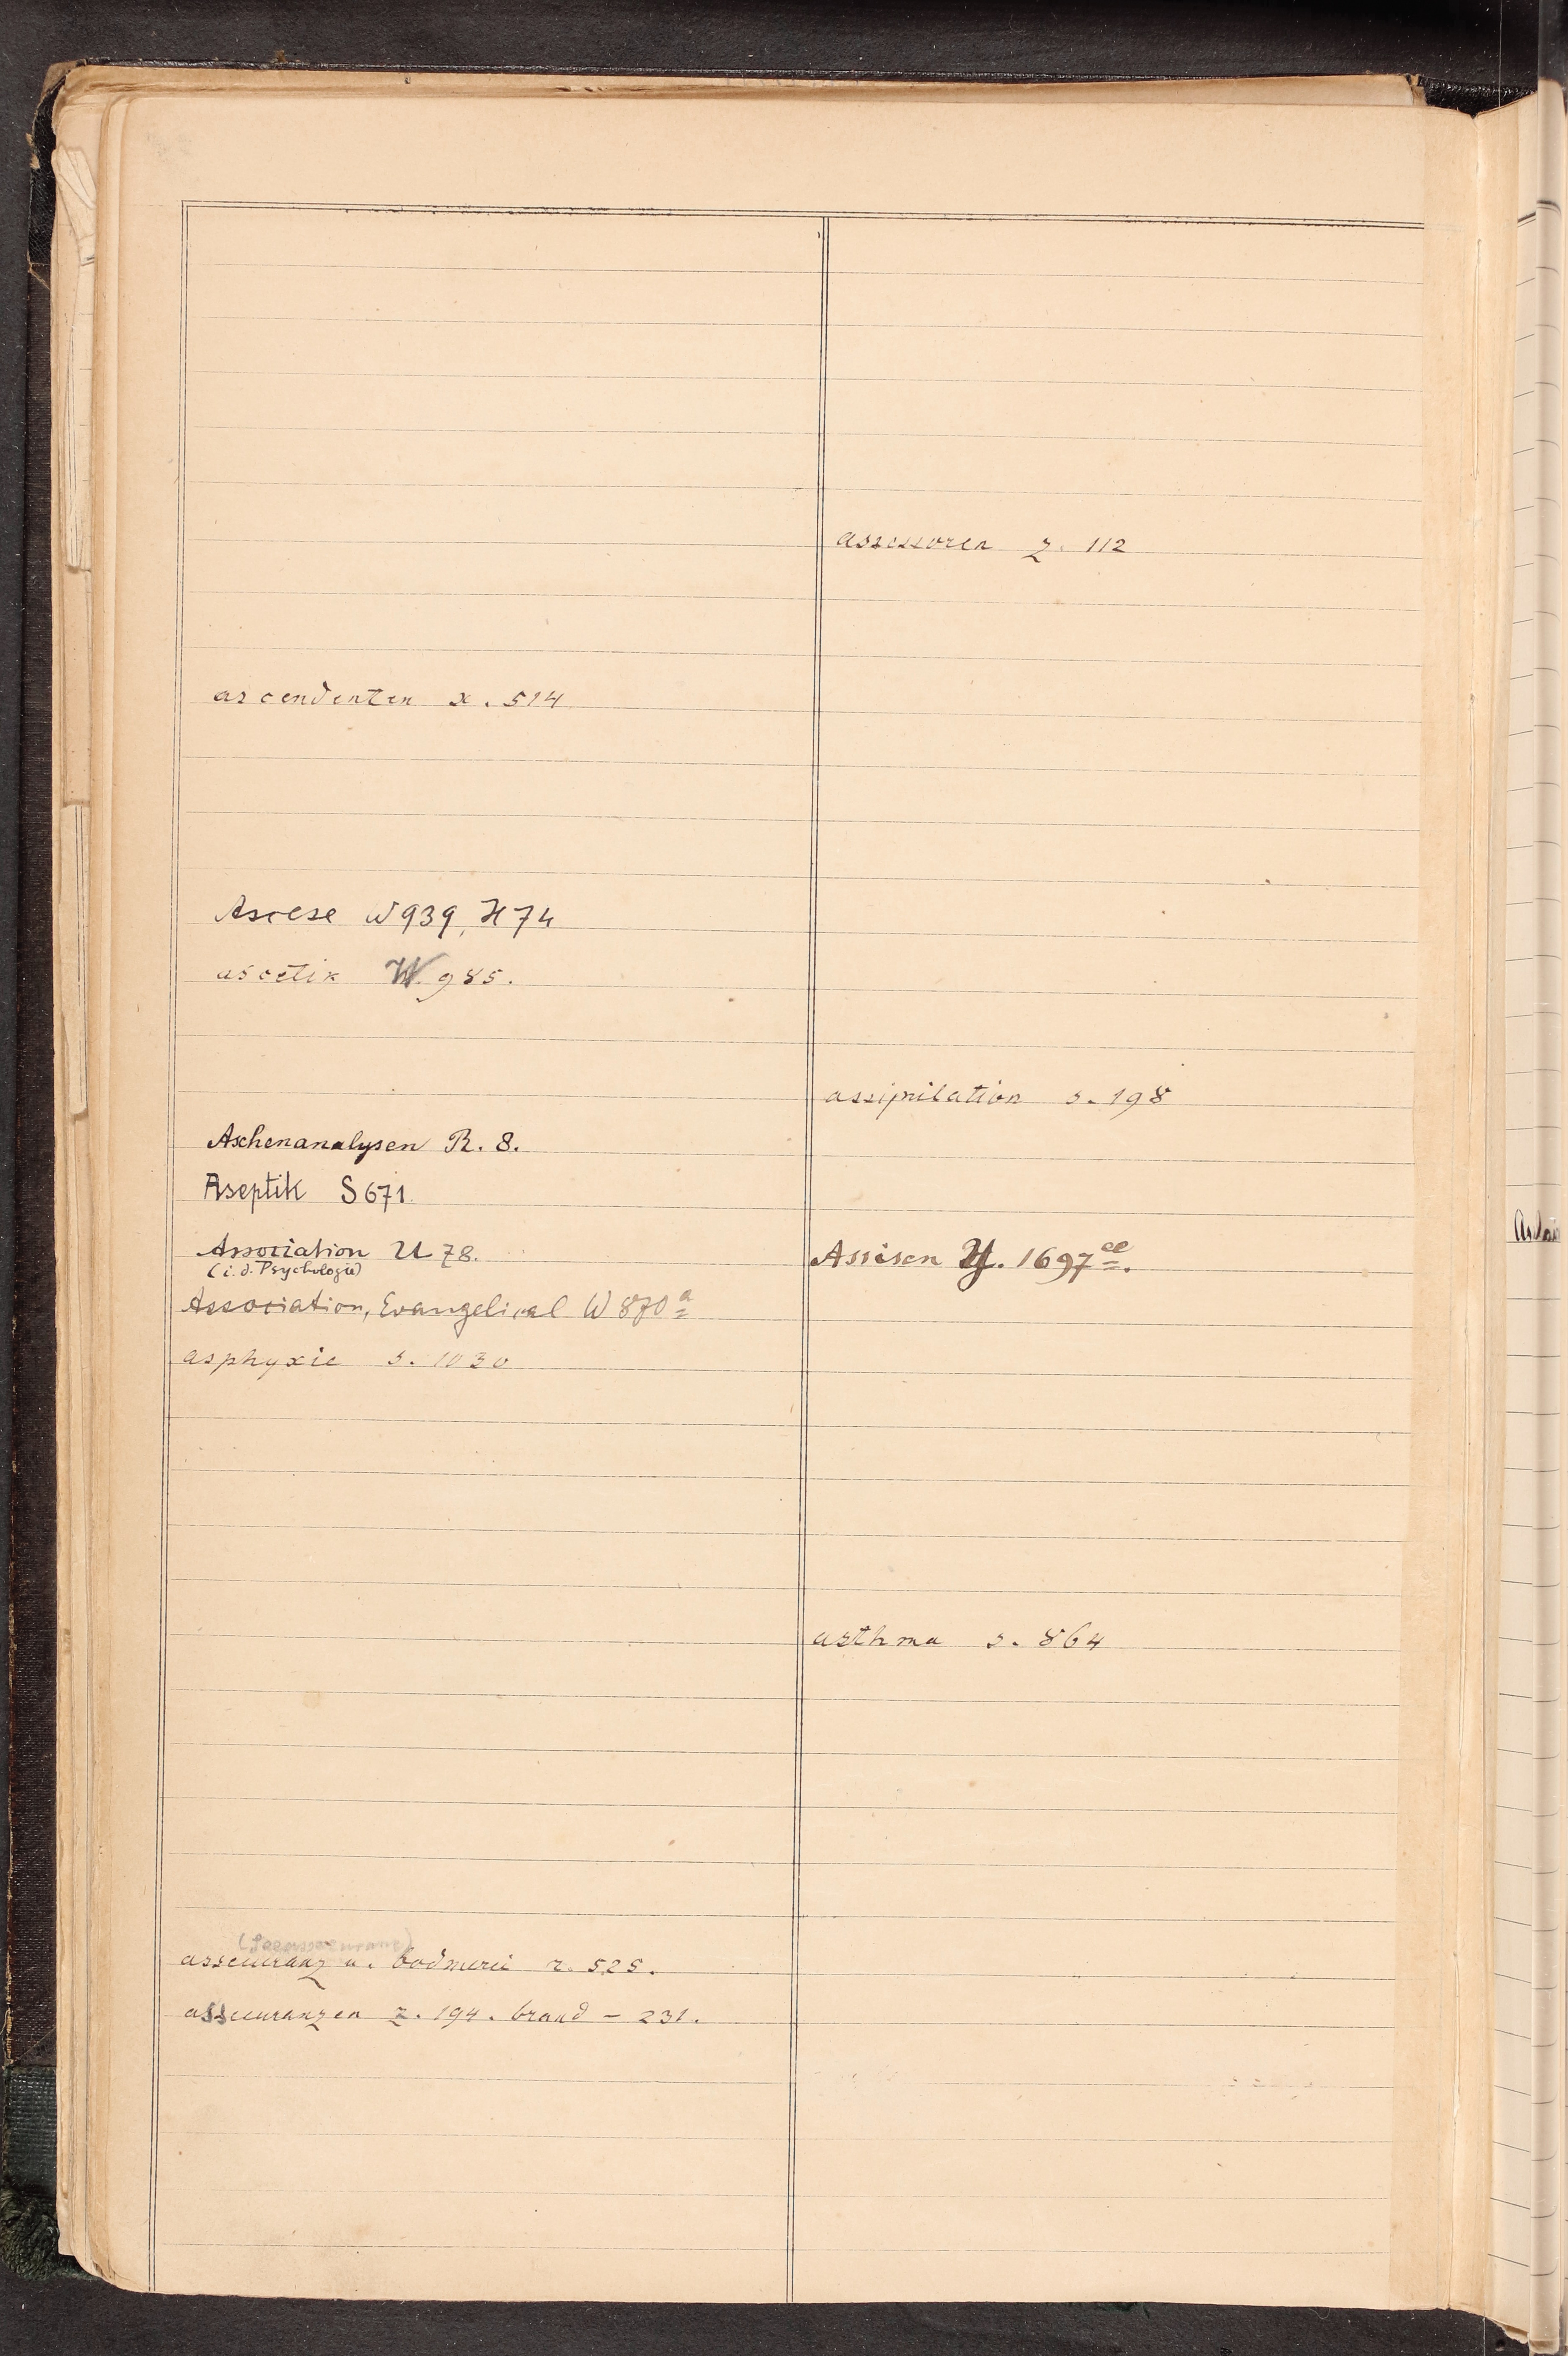 ascendenten x. 514
Ascese W 939, H 74
ascetik W. 985.
Aschenanalysen R. 8.
Aseptik S 671.
Association U 78.
(i. d. Psychologie)
Association, Evangelical W 870 a
asphyxie s. 1030
assecuranz u. bodmerei z. 525.
assecuranzen z. 194. brand – 231.
assessoren z. 112
assimilation s. 198
Assisen Y. 1697 cc.
asthma s. 864